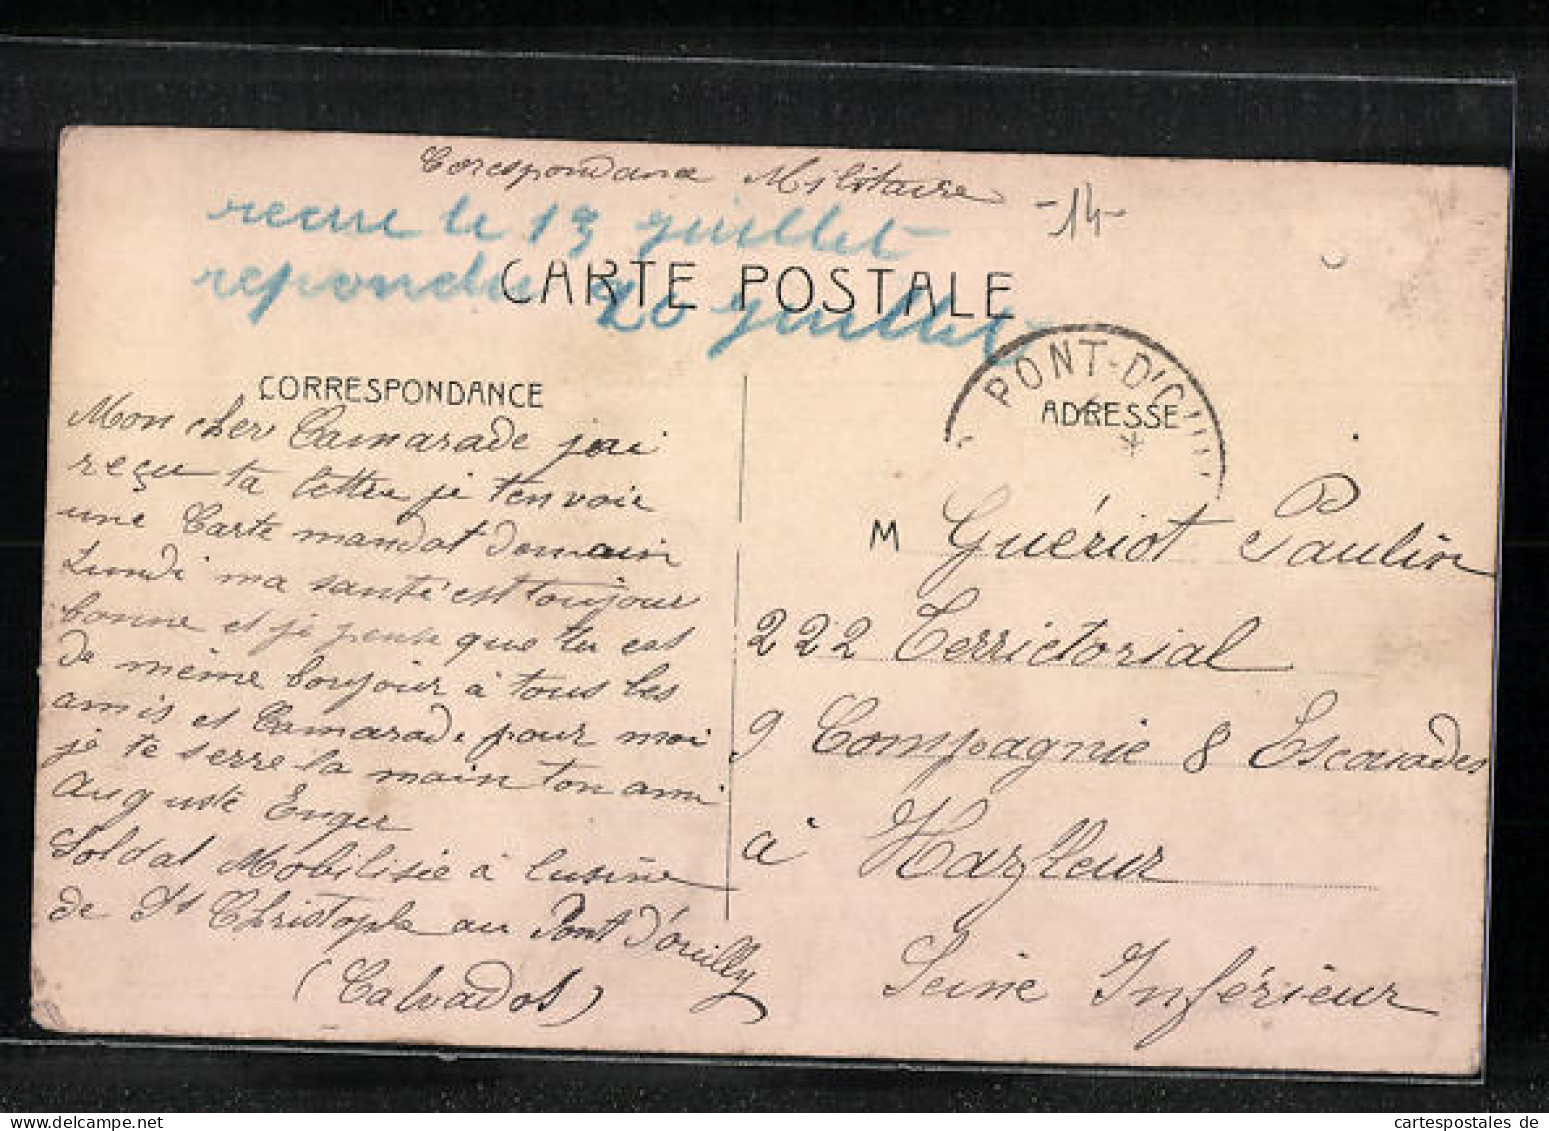 Corespondance Militaire -14-
recue le 13 juillet
repondu 20 juillet
CARTE POSTALE
PONT-D'OUI
CORRESPONDANCE
ADRESSE
Mon cher Camarade jai
reçu ta lettre je t'envoie
une Carte mandat demain
Lundi ma santé est toujour
bonne et je pense que tu est
de même bonjour à tous les
amis et Camarade pour moi
je te serre la main ton ami
Auguste Enger
Soldat Mobilisée à lusine
de St Christophe au Pont d'ouilly
(Calvados)
M Guériot Paulin
222 Terrictorial
9 Compagnie 8 Escouades
à Harfleur
Seine Inférieur
cartespostales de